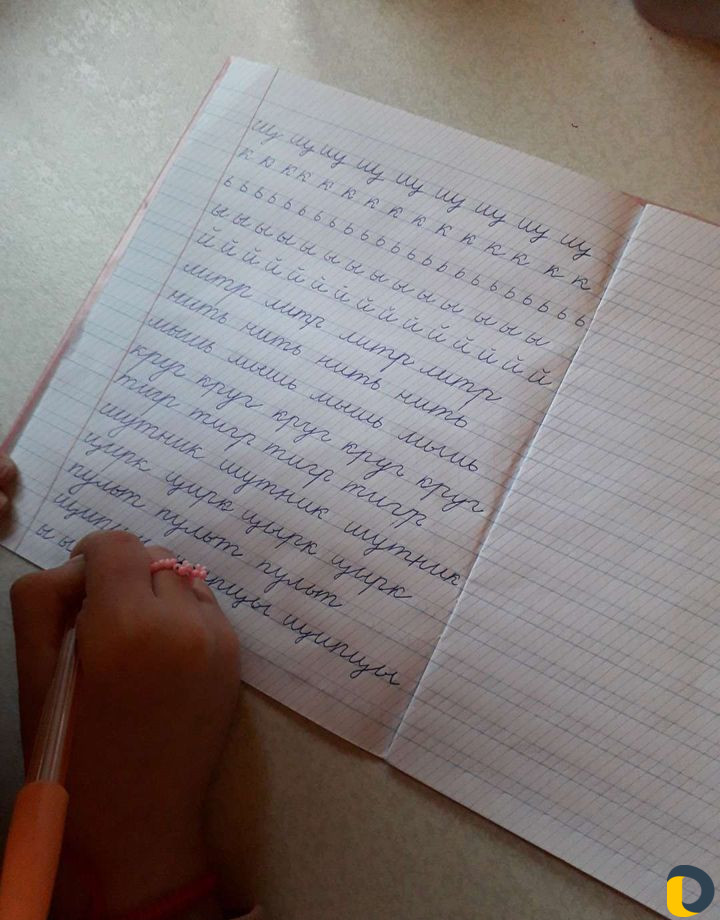 щу щу щу щу щу щу щу щу щу
к к к к к к к к к к к к к к к
ь ь ь ь ь ь ь ь ь ь ь ь ь ь ь ь ь ь ь ь ь ь ь ь
ы ы ы ы ы ы ы ы ы ы ы ы ы ы ы
й й й й й й й й й й й й й й й
литр литр литр литр
нить нить нить нить
мышь мышь мышь мышь
круг круг круг круг круг
тигр тигр тигр тигр
шутник шутник шутник
цирк цирк цирк цирк
пульт пульт пульт
щипцы щипцы щипцы
ы ы